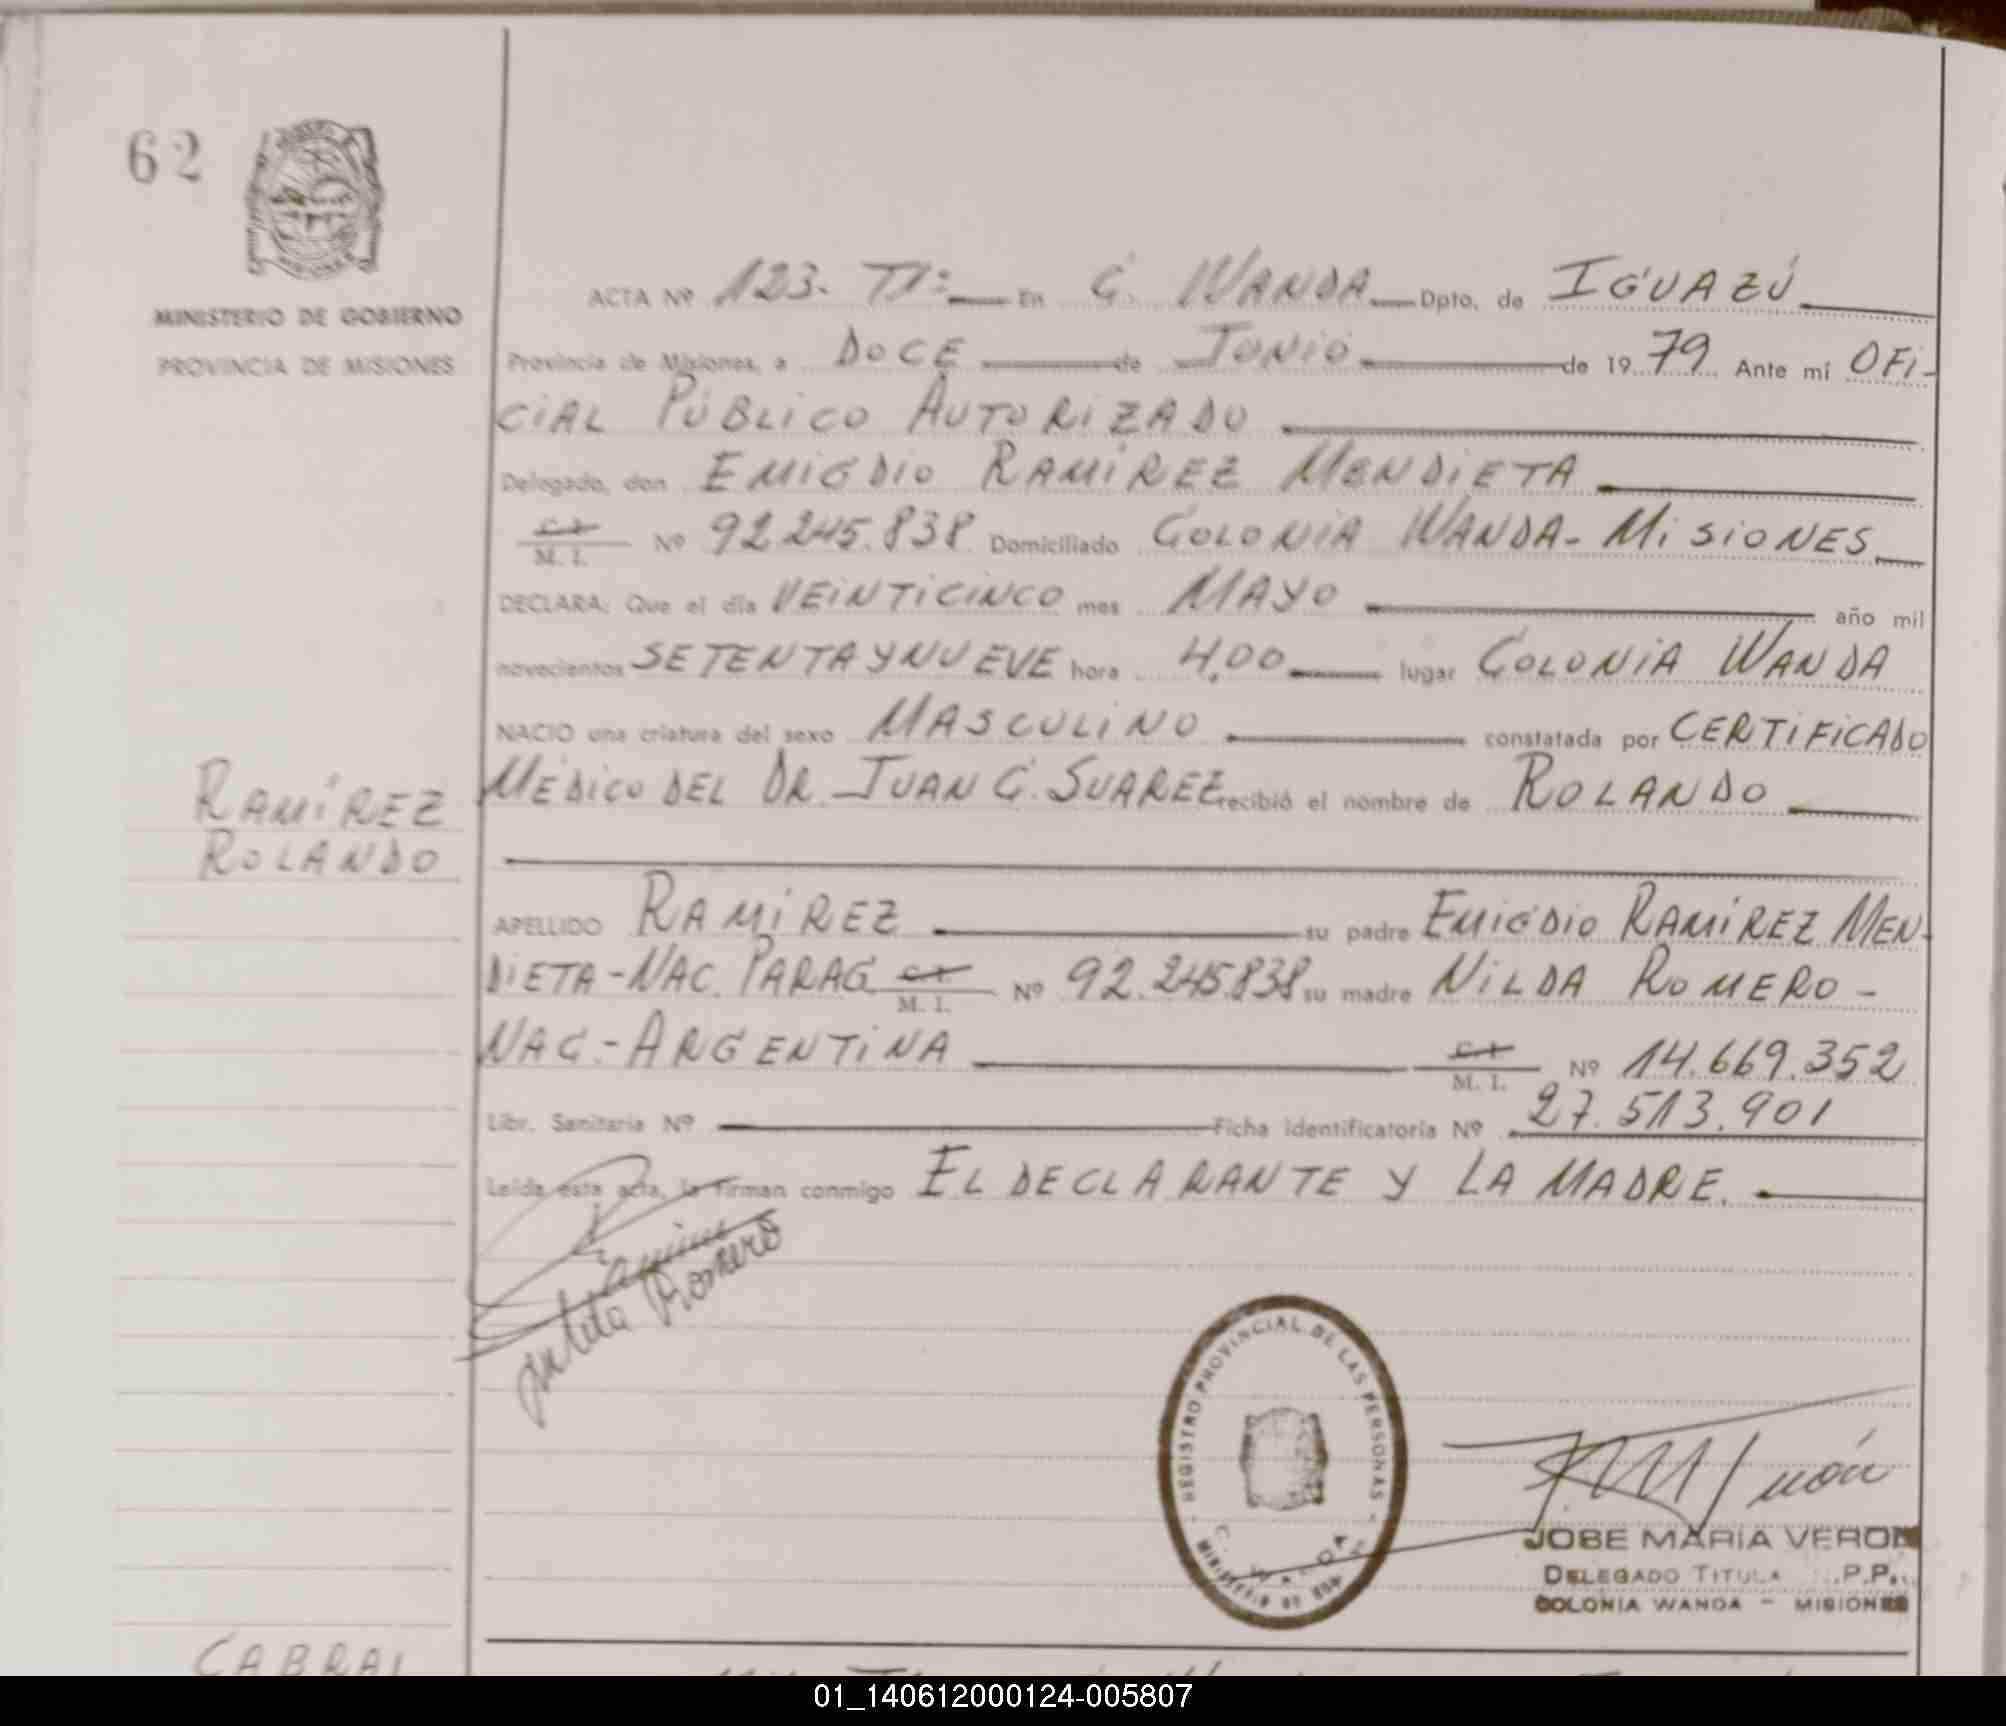 62
MINISTERIO DE GOBIERNO
PROVINCIA DE MISIONES
ACTA Nº 123. TI: En C. WANDA Dpto. de IGUAZÚ
Provincia de Misiones, a DOCE de JUNIO de 1979 Ante mí OFI-
CIAL PÚBLICO AUTORIZADO
Delegado, don EMIGDIO RAMÍREZ MENDIETA
C.I. M. I. Nº 92.245.838 Domiciliado COLONIA WANDA - MISIONES
DECLARA: Que el día VEINTICINCO mes MAYO año mil
novecientos SETENTA Y NUEVE hora 4,00 lugar COLONIA WANDA
NACIO una criatura del sexo MASCULINO constatada por CERTIFICADO
MÉDICO DEL DR. JUAN C. SUAREZ recibió el nombre de ROLANDO
RAMÍREZ
ROLANDO
APELLIDO RAMÍREZ su padre EMIGDIO RAMÍREZ MEN-
DIETA - NAC. PARAG C.I. M. I. Nº 92.245.838 su madre NILDA ROMERO -
NAC.- ARGENTINA C.I. M. I. Nº 14.669.352
Libr. Sanitaria Nº Ficha identificatoria Nº 27.513.901
Leída esta acta, la firman conmigo EL DECLARANTE Y LA MADRE.
Romero
REGISTRO PROVINCIAL DE LAS PERSONAS
JOSE MARIA VERON
DELEGADO TITULA P.P.
COLONIA WANDA - MISIONES
CABRAL
01_140612000124-005807